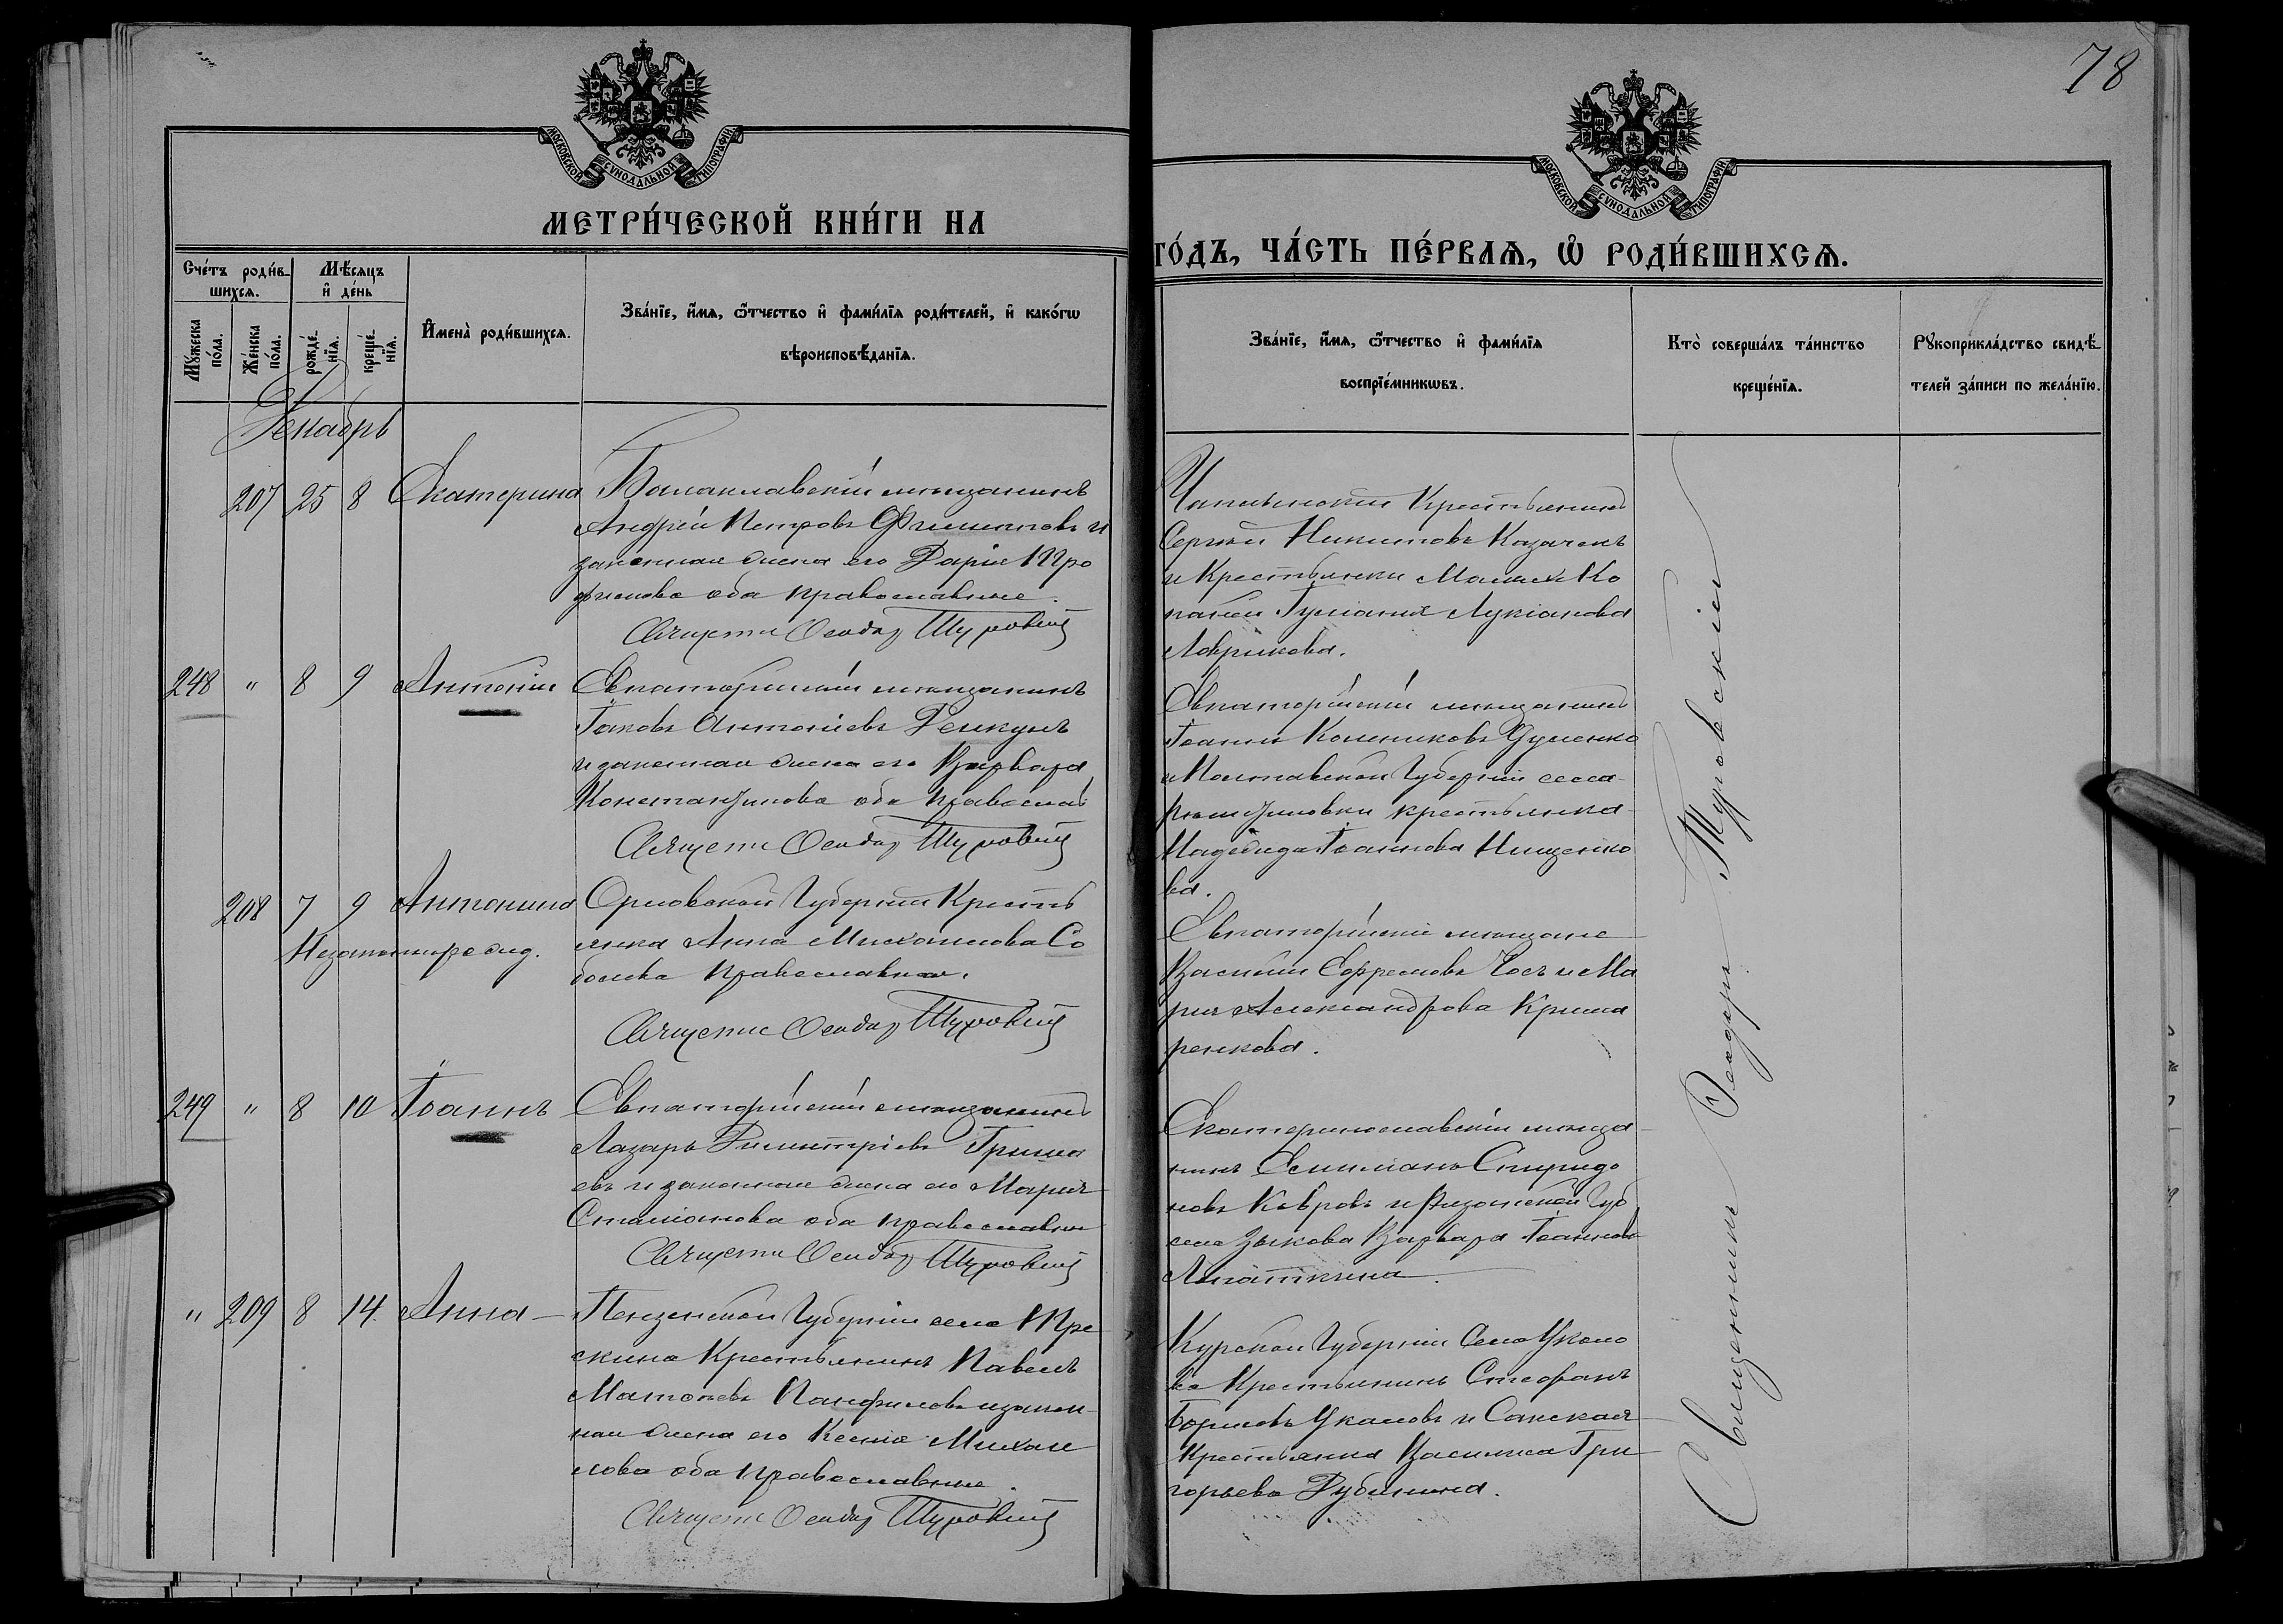 78
МОСКОВСКОЙ СѴНОДАЛЬНОЙ ТИПОГРАФІИ
МОСКОВСКОЙ СѴНОДАЛЬНОЙ ТИПОГРАФІИ
МЕТРИ́ЧЕСКОЙ КНИ́ГИ НА
ГО́ДЪ, ЧА́СТЬ ПЕ́РВАѦ, Ѡ҆ РОДИ́ВШИХСѦ.
Сче́тъ роди́в-
шихсѧ.
Мѣ́сяцъ
и҆ де́нь
Мꙋ́жеска
по́ла.
Же́нска
по́ла.
рожде́-
нїѧ.
креще́-
нїѧ.
И҆мена̀ роди́вшихсѧ.
Зва́нїе, и҆́мѧ, ѻ҆́тчество и҆ фами́лїѧ роди́телей, и҆ како́гѡ
вѣроисповѣ́данїѧ.
Зва́нїе, и҆́мѧ, ѻ҆́тчество и҆ фами́лїѧ
воспрїе́мникѡвъ.
Кто̀ соверша́лъ та́инство
креще́нїѧ.
Рꙋкоприкла́дство свидѣ́-
телей за́писи по жела́нїю.
Декабрь
207 25 8 Екатерина
Балаклавскій мѣщанинъ
Андрей Петровъ и
законная жена его Дарія Тро
фимова оба православные.
Священн Ѳеодор Туровскій
Сергѣй Никитовъ Казаченъ
и Крестьянки
Лукіанова
Лаврикова.
248 " 8 9 Антоній
Евпаторійскій мѣщанинъ
Іаковъ Антоніевъ Демкунъ
и законная жена его Варвара
Константинова оба православ
Священн Ѳеодор Туровскій
Евпаторійскій мѣщанинъ
Іоаннъ Дуденко
и Полтавской Губерніи села
крестьянка
Надежда Іоаннова Нищенко
ва.
208 7 9 Антонина
Незаконнорожд.
Орловской Губерніи Кресть
янка Анна Михаилова Со
болева православная.
Священн Ѳеодор Туровскій
Евпаторійскіе мѣщане
Василій Ефремовъ и Ма
рія Александрова Крама
ренкова.
249 " 8 10 Іоаннъ
Евпаторійскій мѣщанинъ
Лазарь Димитріевъ Грима
евъ и законная жена его Марія
Стиліанова оба православные
Священн Ѳеодор Туровскій
Екатеринославскій мѣща
нинъ Емиліанъ Спиридо
новъ Ковровъ и Рязанской Губ
села Зыкова Варвара Іоаннов
Лопаткина.
" 209 8 14. Анна
Пензенской Губерніи села Тре
скина Крестьянинъ Павелъ
Матѳеевъ Панфиловъ и закон
ная жена его Ксенія Михаи
лова оба Православные.
Священн Ѳеодор Туровскій
Курской Губерніи Села Уколо
ва Крестьянинъ Стефанъ
Борисовъ Укаловъ и Сакская
Крестьянка Василиса Гри
горьева Дубинина.
Священникъ Ѳеодоръ Туровскій